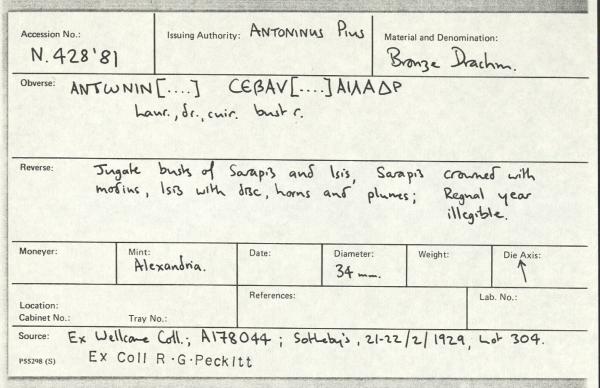 Accession No.: Issuing Authority: ANTONINUS PIUS Material and Denomination:
N.428'81 Bronze Drachm.
Obverse: ANTωNIN[....] CЄBAV[....]AIΛAΔP
laur., dr., cuir. bust r.
Reverse: Jugate busts of Sarapis and Isis, Sarapis crowned with
modius, Isis with disc, horns and plumes; Regnal year
illegible.
Moneyer: Mint: Date: Diameter: Weight: Die Axis:
Alexandria. 34 mm. ↑
References: Lab. No.:
Location:
Cabinet No.: Tray No.:
Source: Ex Wellcome Coll.; A178044; Sotheby's, 21-22/2/1929, Lot 304.
PS5298 (S) Ex Coll R·G·Peckitt